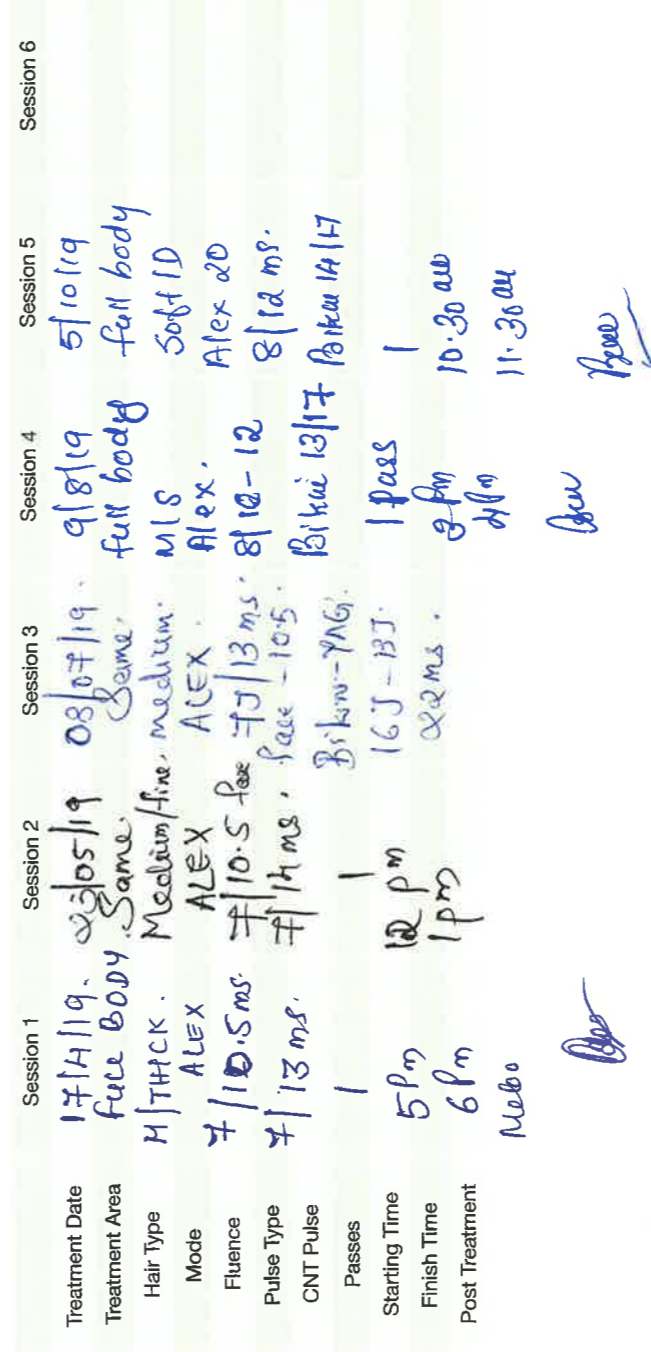 Session 1 Session 2 Session 3 Session 4 Session 5 Session 6
Treatment Date 17/4/19. 23/05/19 08/07/19. 9/8/19 5/10/19
Treatment Area FULL BODY. Same. Same. full body full body
Hair Type M/THICK. Medium/fine. medium. M/S Soft ID
Mode ALEX ALEX ALEX. Alex. Alex 20
Fluence 7/10.5 ms. 7/10.5 face 7J/13 ms. 8/12 ms.
Pulse Type 7/13 ms. 7/14 ms. face - 10.5.
CNT Pulse Bikini-YAG. 13/17 14/17
Passes 1 1 16J - 13J. 1 Pass 1
Starting Time 5 Pm 12 pm 22 ms. 3 Pm 10.30 am
Finish Time 6 Pm 1 pm 4 Pm 11.30 am
Post Treatment Mebo